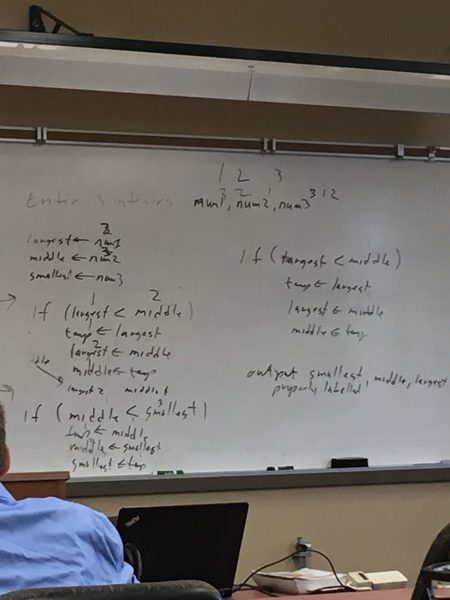 1 2 3
Enter 3 integers num1, num2, num3
3 2 1
3 1 2
largest ← num1
middle ← num2
smallest ← num3
1 2
if (largest < middle)
temp ← largest
largest ← middle
middle ← temp
largest 2 middle 1
if (middle < smallest)
temp ← middle
middle ← smallest
smallest ← temp
if (largest < middle)
temp ← largest
largest ← middle
middle ← temp
output smallest, middle, largest
properly labelled